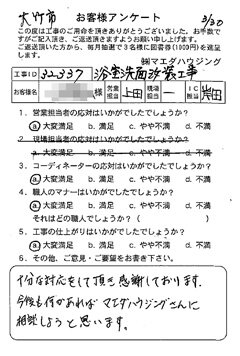 大竹市 お客様アンケート 3/30
この度は工事のご用命を頂きましてありがとうございました。お手数です
がご記入頂き、ご返送頂きますようお願い申し上げます。
ご返送頂いた方から、毎月抽選で3名様に図書券(1000円)を進呈
します。
㈱マエダハウジング
工事ID 22337 浴室洗面改装工事
お客様名 様 営業担当 上田 現場担当 一 IC担当 岸田
1. 営業担当者の応対はいかがでしたでしょうか?
a.大変満足 b.満足 c.やや不満 d.不満
2. 現場担当者の応対はいかがでしたでしょうか?
a.大変満足 b.満足 c.やや不満 d.不満
3. コーディネーターの応対はいかがでしたでしょうか?
a.大変満足 b.満足 c.やや不満 d.不満
4. 職人のマナーはいかがでしたでしょうか?
a.大変満足 b.満足 c.やや不満 d.不満
それはどの職人でしょうか? ( )
5. 工事の仕上がりはいかがでしたでしょうか?
a.大変満足 b.満足 c.やや不満 d.不満
6. その他、ご意見・ご要望をお書き下さい。
十分な対応をして頂き感謝しております。
今後も何かあればマエダハウジングさんに
相談しようと思います。